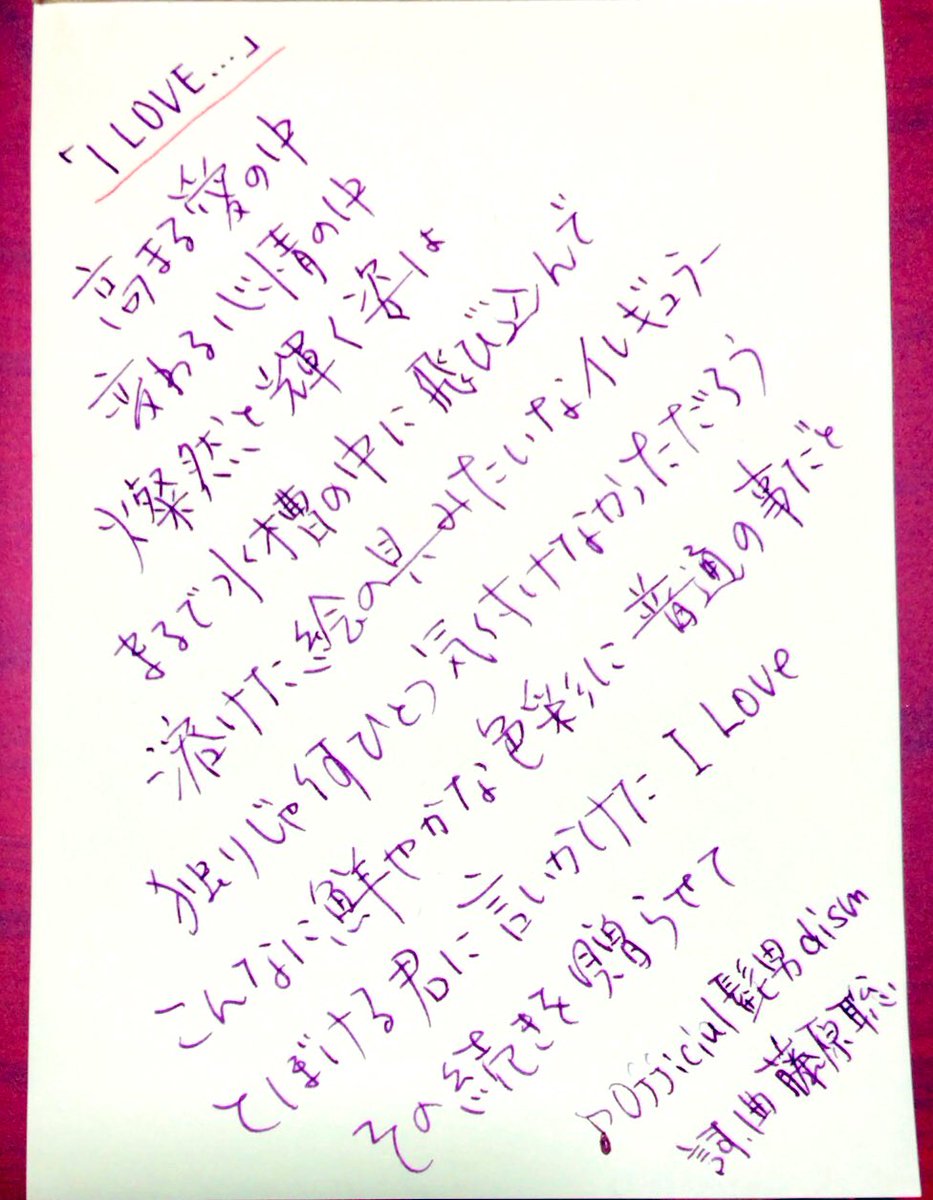 「I LOVE…」
高まる愛の中
変わる心情の中
燦然と輝く姿は
まるで水槽の中に飛び込んで
溶けた絵の具みたいなイレギュラー
独りじゃ何ひとつ気付けなかっただろう
こんなに鮮やかな色彩に普通の事だと
とぼける君に言いかけた I Love
その続きを贈らせて
♪Official髭男dism
詞.曲 藤原聡